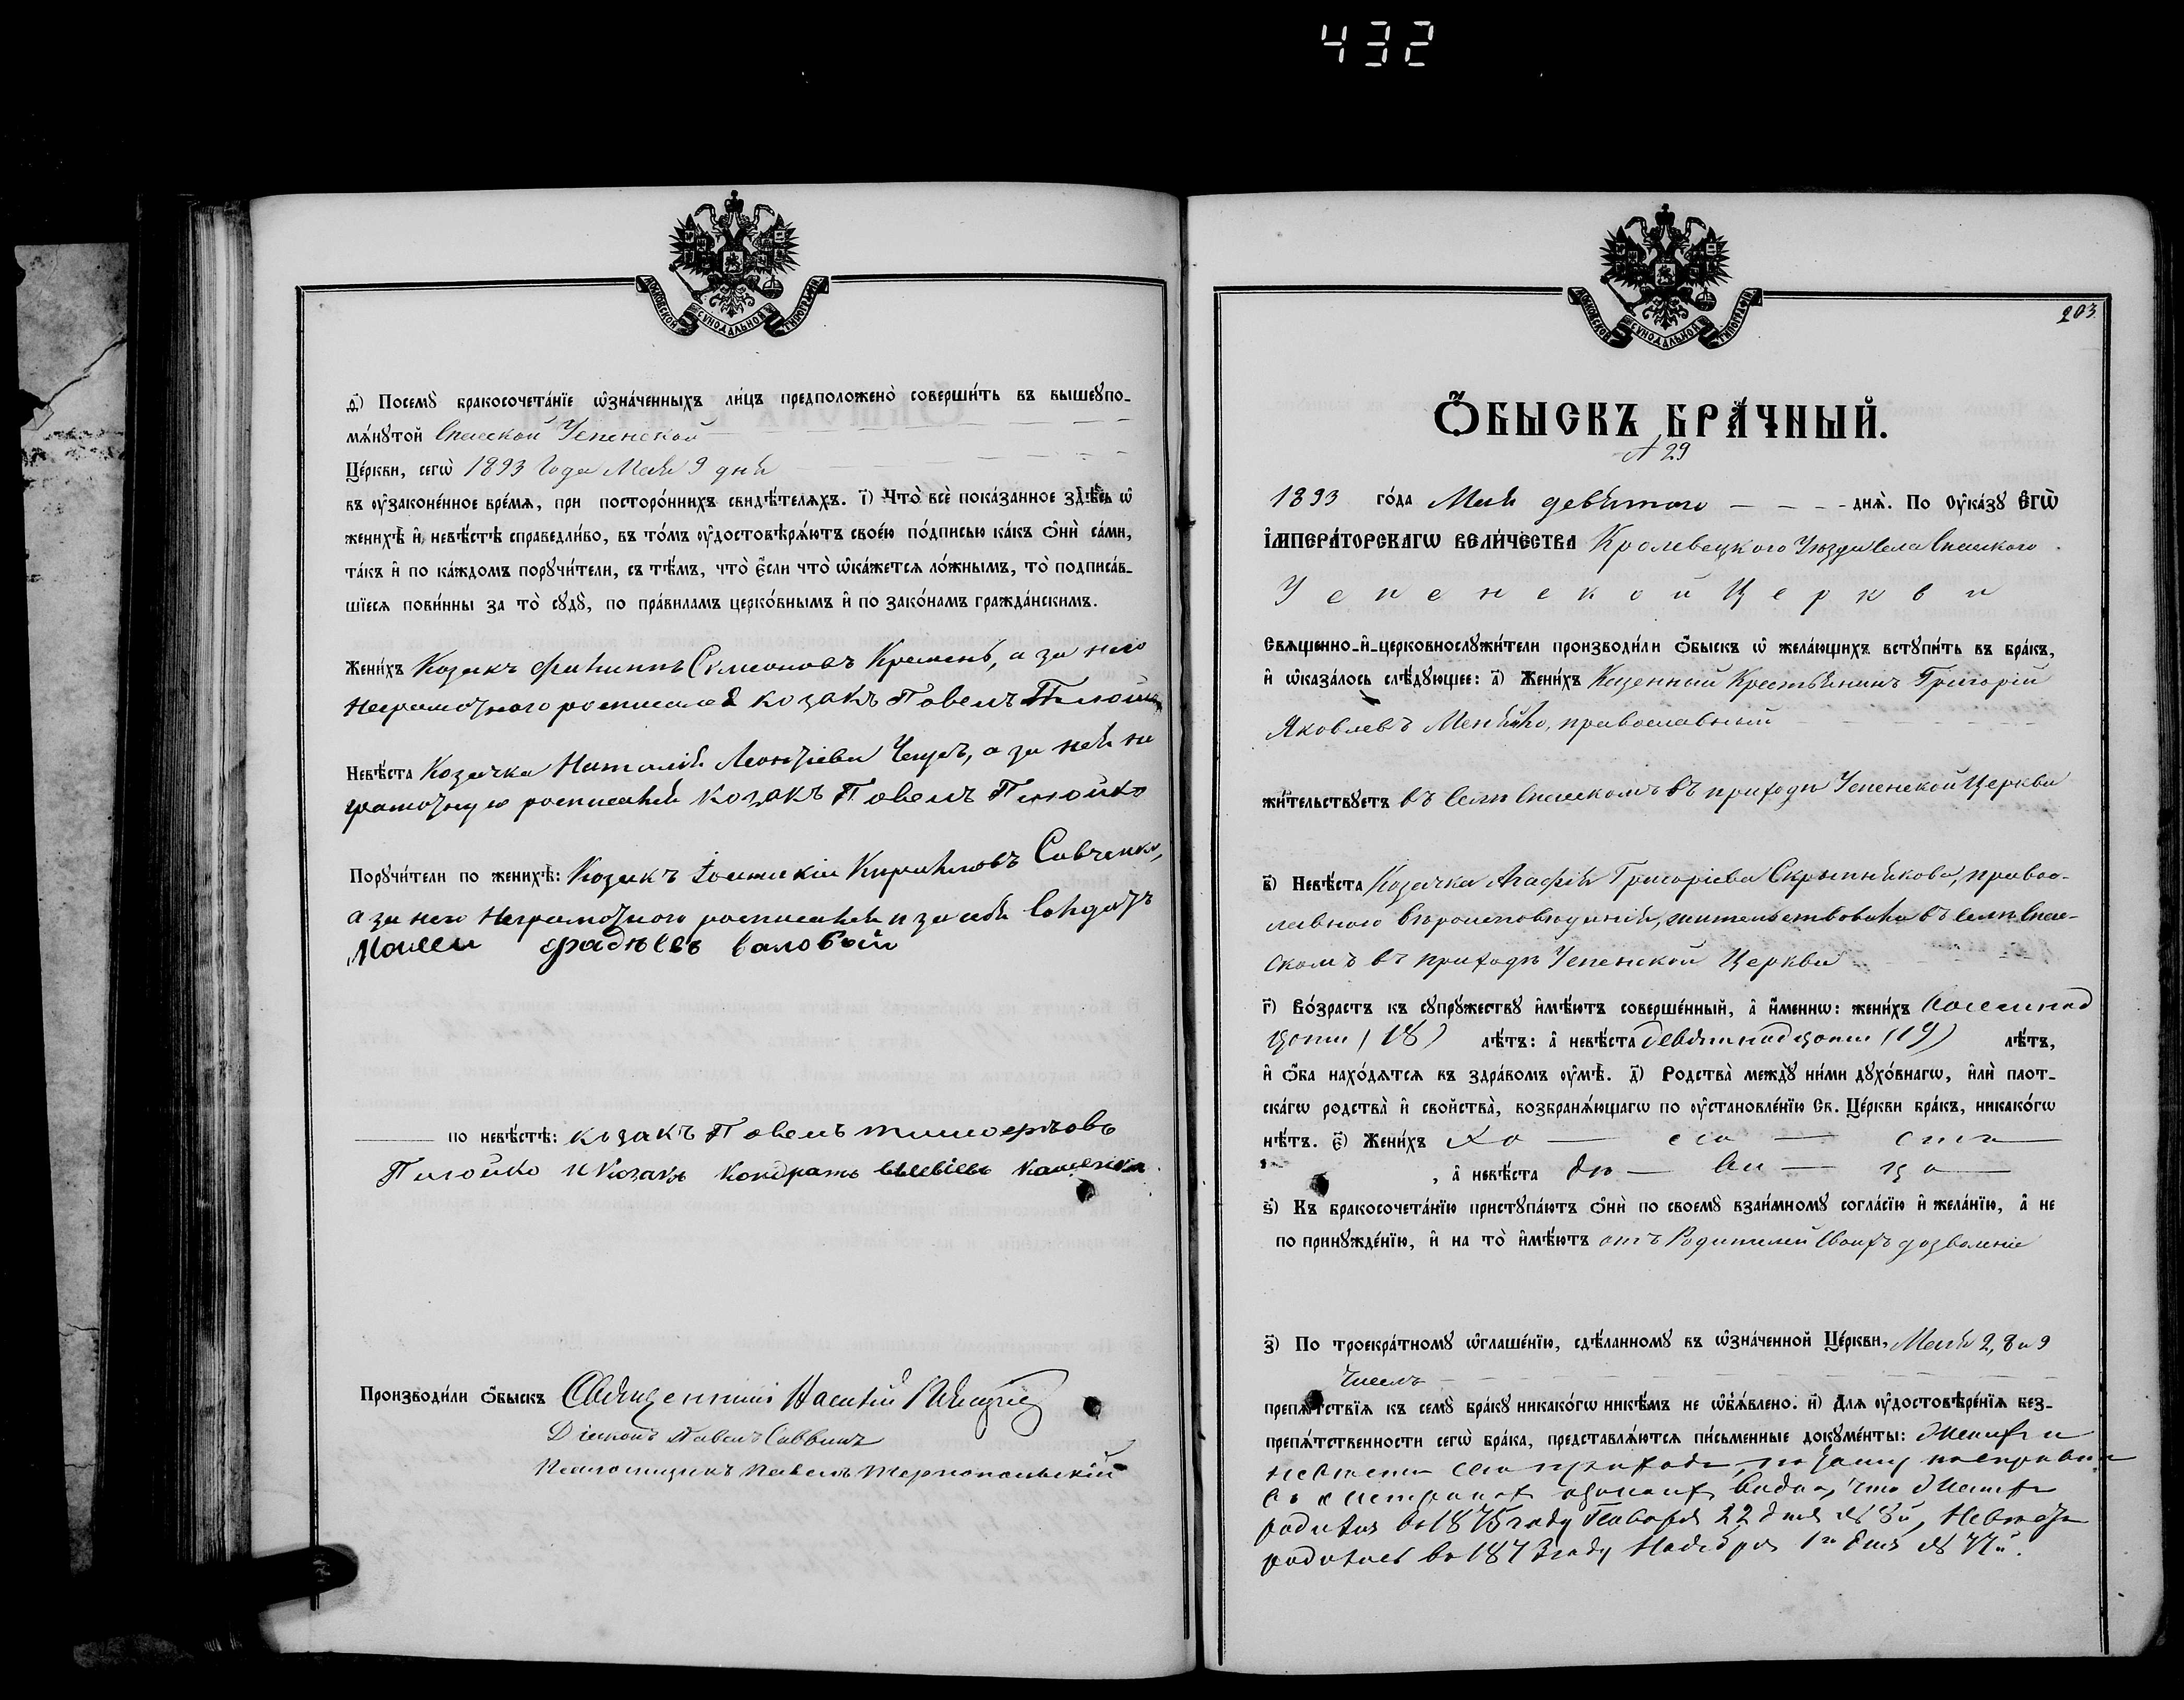 432
МОСКОВСКОЙ СУНОДАЛЬНОЙ ТИПОГРАФІИ
д҃) Посемꙋ̀ бракосочета́нїе ѡ҆зна́ченныхъ ли́цъ предположено̀ соверши́ть въ вышеꙋпо-
мѧ́нꙋтой Спасской Успенской
Це́ркви, сегѡ̀ 1893 Года Мая 9 дня
въ ᲂу҆законе́нное вре́мѧ, при посторо́ннихъ свидѣ́телѧхъ. і҃) Что̀ всѐ пока́занное здѣ́сь ѡ҆
женихѣ̀ и҆ невѣ́стѣ справедли́во, въ то́мъ ᲂу҆достовѣрѧ́ютъ свое́ю по́дписью ка́къ ѻ҆нѝ са́ми,
та́къ и҆ по ка́ждомъ порꙋчи́тели, съ тѣ́мъ, что̀ є҆́сли что̀ ѡ҆ка́жетсѧ ло́жнымъ, то̀ подписа́в-
шїесѧ пови́нны за то̀ сꙋдꙋ̀, по пра́виламъ церко́внымъ и҆ по зако́намъ гражда́нскимъ.
Жени́хъ Козакъ Филиппъ Симеоновъ Кремень, а за него
неграмотнаго росписался козакъ Павелъ
Невѣ́ста Козачка Наталія Леонтіева, а за ней не
грамотную росписался козакъ Павелъ
Порꙋчи́тели по женихѣ̀: Козакъ Кириловъ Савченко,
а за него неграмотнаго росписался и за себя Солдатъ
Моисей Фадѣевъ
по невѣ́стѣ: козакъ Павелъ Тимофѣевъ
и Козакъ Кондратъ
Производи́ли ѻ҆́быскъ Священникъ Василій
Діаконъ Павелъ Саввинъ
Псаломщикъ Павелъ Тернопольскій
МОСКОВСКОЙ СУНОДАЛЬНОЙ ТИПОГРАФІИ
203.
Ѻ҆́БЫСКЪ БРА́ЧНЫЙ.
№ 29
1893 го́да Мая девятаго дня̀. По Оу҆ка́зꙋ Є҆ГѠ̀
І҆МПЕРА́ТОРСКАГѠ ВЕЛИ́ЧЕСТВА Кролевецкого Уѣзда Села Спасского
Успенской Церкви
Свѧщенно-и҆-церковнослꙋжи́тели производи́ли ѻ҆́быскъ ѡ҆ жела́ющихъ встꙋпи́ть въ бра́къ,
и҆ ѡ҆каза́лось слѣ́дꙋющее: а҃) Жени́хъ Казенный Крестьянинъ Григорій
Яковлевъ, православный
жи́тельствꙋетъ въ Селѣ Спасскомъ въ приходѣ Успенской Церкви
в҃) Невѣ́ста Козачка Агафія Григоріева Скрыпникова, право-
славного вѣроисповѣданія, жительствовала въ селѣ Спас-
скомъ въ приходѣ Успенской Церкви
г҃) Во́зрастъ къ сꙋпрꙋ́жествꙋ и҆мѣ́ютъ соверше́нный, а҆ и҆́меннѡ: жени́хъ Восемнад
цати (18) лѣ́тъ: а҆ невѣ́ста девятнадцати (19) лѣ́тъ,
и҆ ѻ҆́ба нахо́дѧтсѧ въ здра́вомъ ᲂу҆мѣ̀. д҃) Родства̀ междꙋ̀ ни́ми дꙋхо́внагѡ, и҆лѝ плот-
ска́гѡ родства̀ и҆ свойства̀, возбранѧ́ющагѡ по ᲂу҆становле́нїю Св. Це́ркви бра́къ, никако́гѡ
нѣ́тъ. є҃) Жени́хъ Хо — ло — стъ —
, а҆ невѣ́ста дѣ — ви — ца —
ѕ҃) Къ бракосочета́нїю пристꙋпа́ютъ ѻ҆нѝ по своемꙋ̀ взаи́мномꙋ согла́сїю и҆ жела́нїю, а҆ не
по принꙋжде́нїю, и҆ на то̀ и҆мѣ́ютъ отъ Родителей своихъ дозволеніе
з҃) По троекра́тномꙋ ѡ҆глаше́нїю, сдѣ́ланномꙋ въ ѡ҆зна́ченной Це́ркви, Мая 2, 8 и 9
Числъ
препѧ́тствїѧ къ семꙋ̀ бра́кꙋ никако́гѡ никѣ́мъ не ѡ҆б̾ѧ́влено. и҃) Длѧ ᲂу҆достовѣре́нїѧ без-
препѧ́тственности сегѡ̀ бра́ка, представлѧ́ютсѧ пи́сьменные докꙋме́нты: Женихъ и
невѣста сего прихода, по
видно, что Женихъ
родился въ 1875 году Января 22 дня № 8й, Невѣста
родилась въ 1873 году Ноября 1го дня